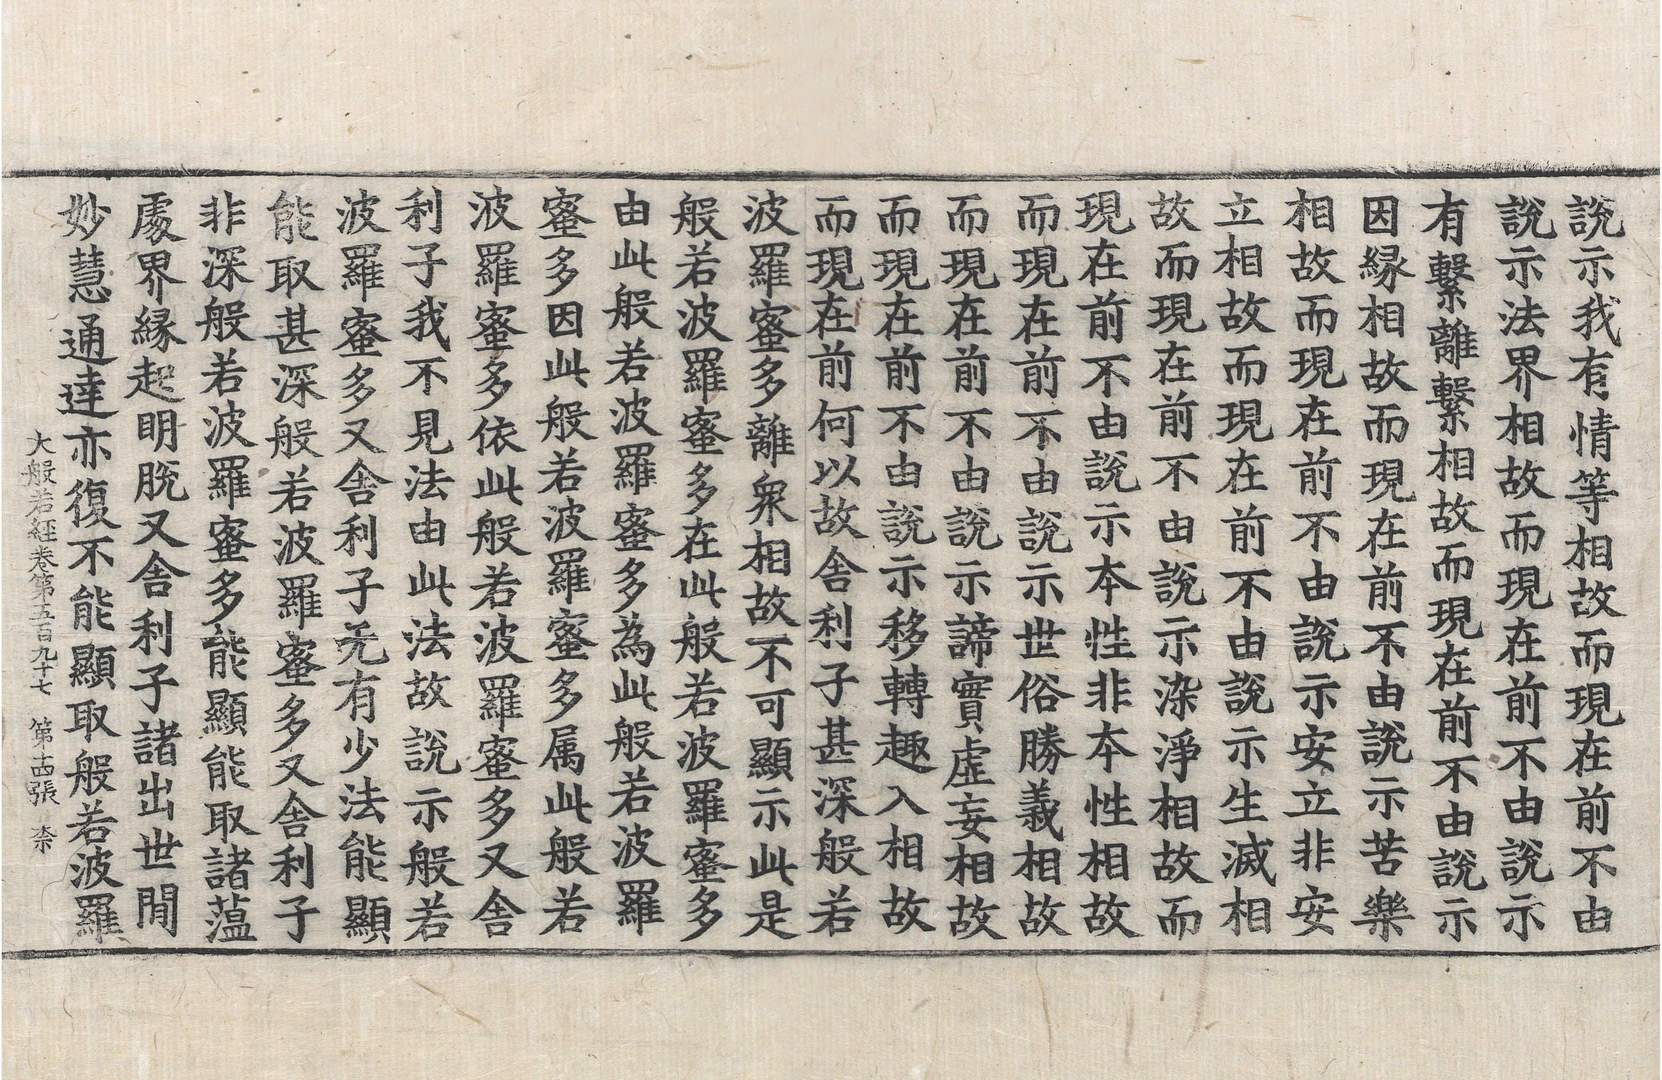 說示我有情等相故而現在前不由
說示法界相故而現在前不由說示
有繫離繫相故而現在前不由說示
因縁相故而現在前不由說示苦樂
相故而現在前不由說示安立非安
立相故而現在前不由說示生滅相
故而現在前不由說示染淨相故而
現在前不由說示本性非本性相故
而現在前不由說示世俗勝義相故
而現在前不由說示諦實虛妄相故
而現在前不由說示移轉趣入相故
而現在前何以故舍利子甚深般若
波羅蜜多離衆相故不可顯示此是
般若波羅蜜多在此般若波羅蜜多
由此般若波羅蜜多為此般若波羅
蜜多因此般若波羅蜜多属此般若
波羅蜜多依此般若波羅蜜多又舍
利子我不見法由此法故說示般若
波羅蜜多又舍利子无有少法能顯
能取甚深般若波羅蜜多又舍利子
非深般若波羅蜜多能顯能取諸蘊
處界緣起明脫又舍利子諸出世間
妙慧通達亦復不能顯取般若波羅
大般若經卷第五百九十七 第十四張 柰